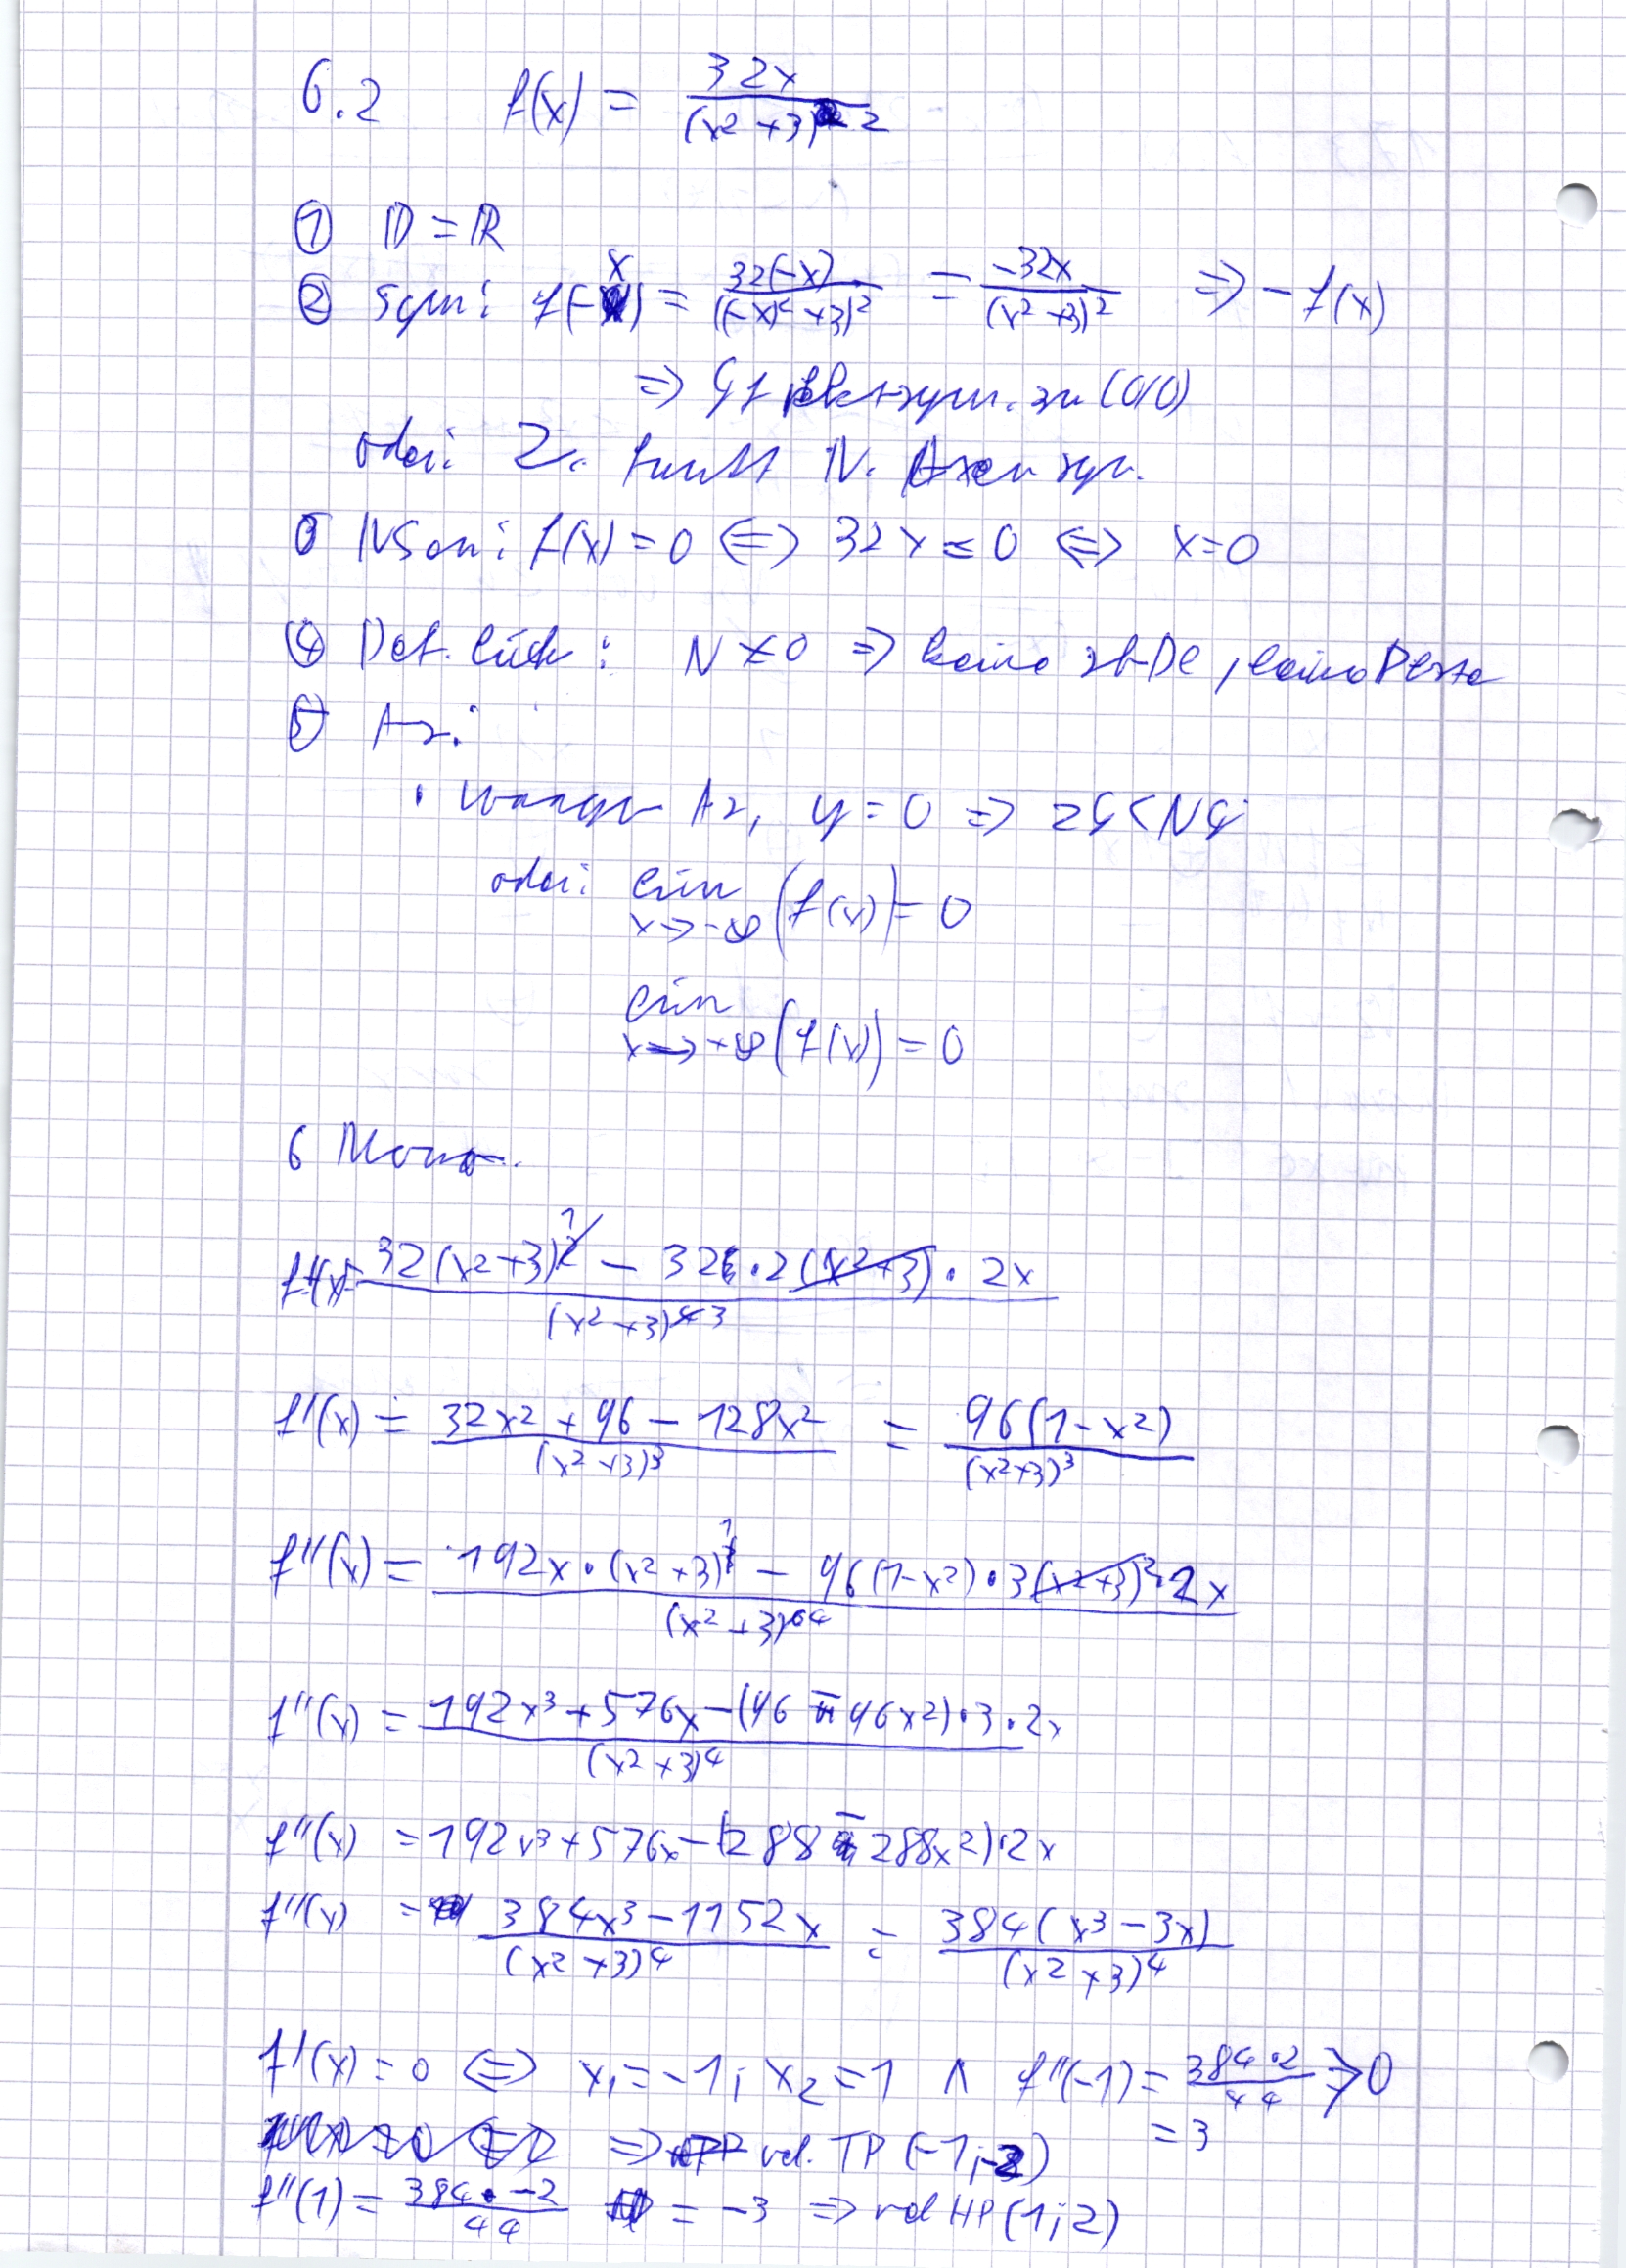 6.2 f(x) = 32x / (x² + 3)²
① D = ℝ
② Sym: f(-x) = 32(-x) / ((-x)² + 3)² = -32x / (x² + 3)² ⇒ -f(x)
⇒ Gf pktsym. zu (0/0)
oder: Z. Punkt N. Axen sym.
③ NSen: f(x) = 0 ⇔ 32x = 0 ⇔ x = 0
④ Def. lück: N ≠ 0 ⇒ keine sb-DL, keine
⑤ As:
• waagr As, y = 0 ⇒ ZG < NG
oder: lim x→-∞ (f(x)) = 0
lim x→+∞ (f(x)) = 0
6 Mono.
f'(x) = 32(x² + 3)² - 32x · 2(x² + 3) · 2x / (x² + 3)⁴ 3
f'(x) = 32x² + 96 - 128x² / (x² + 3)³ = 96(1 - x²) / (x² + 3)³
f''(x) = -192x · (x² + 3)¹ - 96(1 - x²) · 3(x² + 3)² · 2x / (x² + 3)⁶ 4
f''(x) = -192x³ + 576x - (96 - 96x²) · 3 · 2x / (x² + 3)⁴
f''(x) = -192x³ + 576x - (288 - 288x²) · 2x
f''(x) = 384x³ - 1152x / (x² + 3)⁴ = 384(x³ - 3x) / (x² + 3)⁴
f'(x) = 0 ⇔ x₁ = -1; x₂ = 1 ∧ f''(-1) = 384 · 2 / 4⁴ > 0
= 3
⇒ rel. TP (-1; -2)
f''(1) = 384 · -2 / 4⁴ = -3 ⇒ rel HP (1; 2)